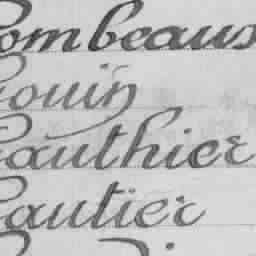 ombeaux
Gouin
Gauthier
Gautier